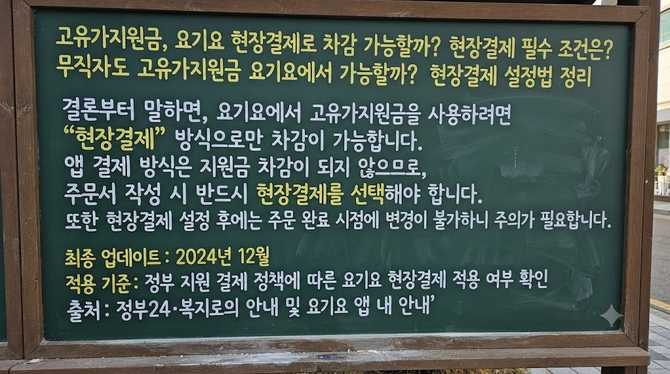 고유가지원금, 요기요 현장결제로 차감 가능할까? 현장결제 필수 조건은?
무직자도 고유가지원금 요기요에서 가능할까? 현장결제 설정법 정리
결론부터 말하면, 요기요에서 고유가지원금을 사용하려면
“현장결제” 방식으로만 차감이 가능합니다.
앱 결제 방식은 지원금 차감이 되지 않으므로,
주문서 작성 시 반드시 현장결제를 선택해야 합니다.
또한 현장결제 설정 후에는 주문 완료 시점에 변경이 불가하니 주의가 필요합니다.
최종 업데이트 : 2024년 12월
적용 기준 : 정부 지원 결제 정책에 따른 요기요 현장결제 적용 여부 확인
출처 : 정부24·복지로의 안내 및 요기요 앱 내 안내’